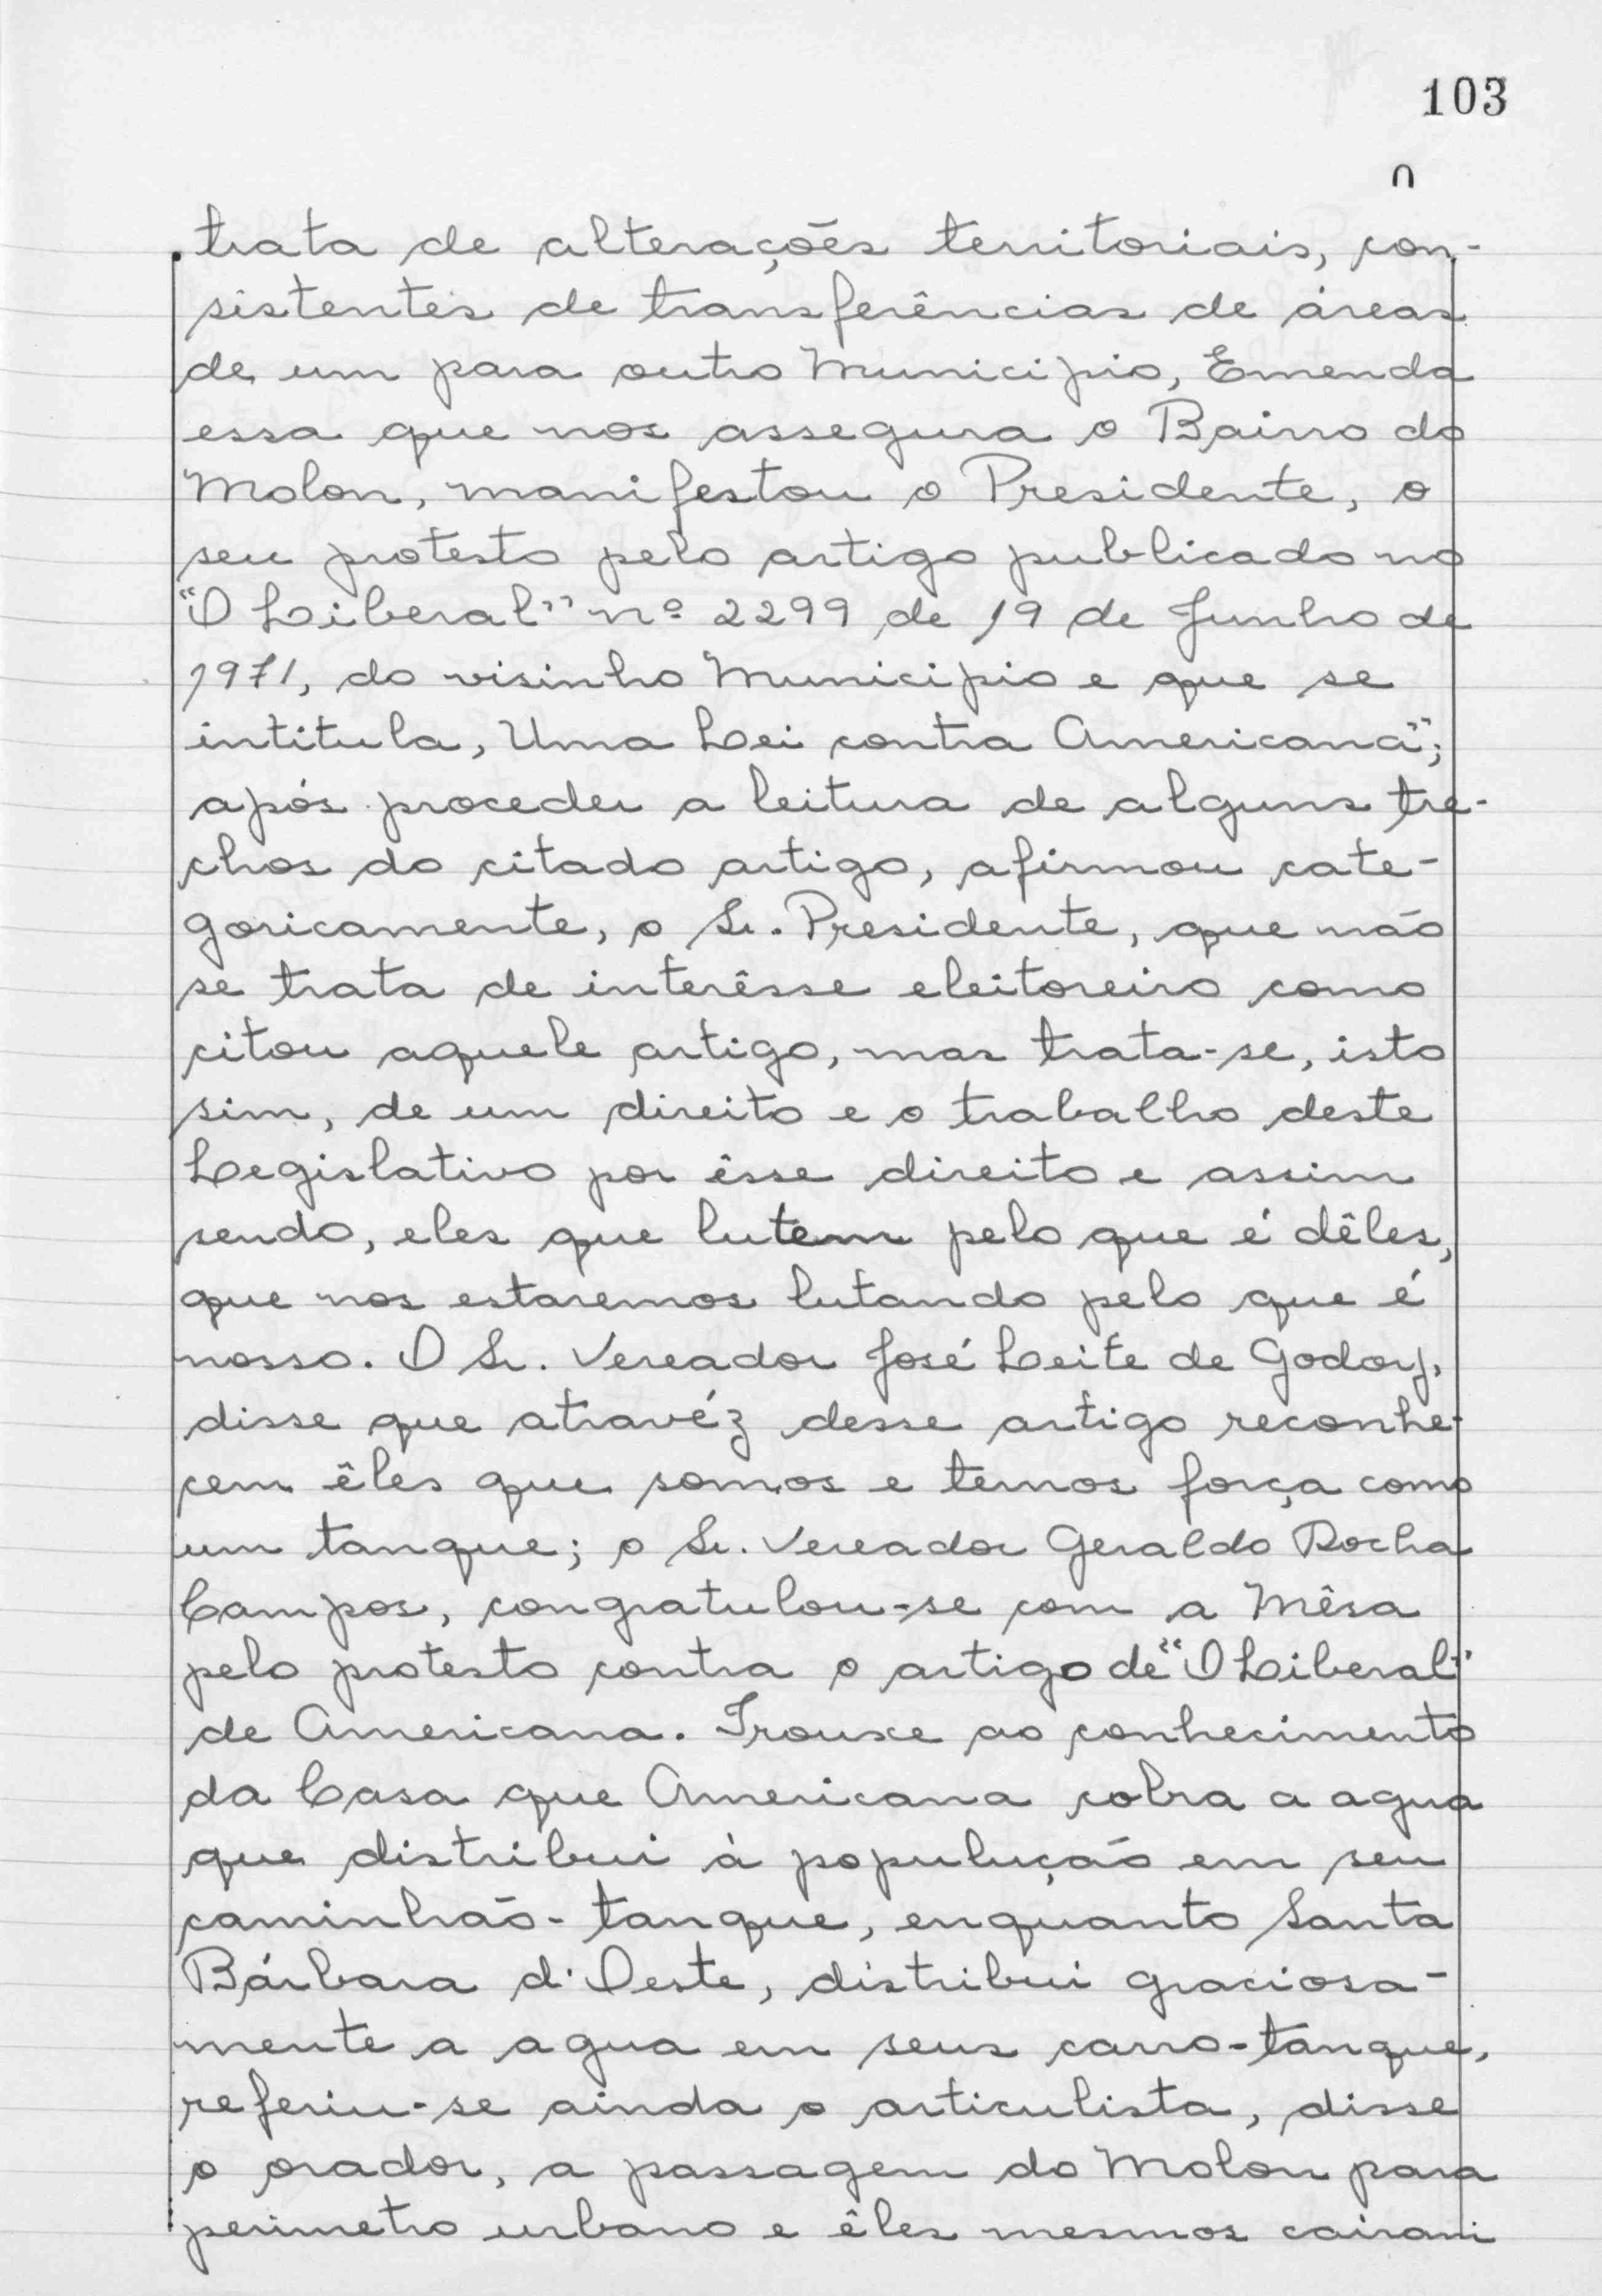 103
trata de alterações territoriais, con-
sistentes de transferências de áreas
de um para outro Municipio, Emenda
essa que nos assegura o Bairro do
Molon, manifestou o Presidente, o
seu protesto pelo artigo publicado no
"O Liberal" nº 2299 de 19 de Junho de
1971, do visinho Municipio e que se
intitula, Uma Lei contra Americana";
após proceder a leitura de alguns tre-
chos do citado artigo, afirmou cate-
goricamente, o Sr. Presidente, que não
se trata de interêsse eleitoreiro como
citou aquele artigo, mas trata-se, isto
sim, de um direito e o trabalho deste
Legislativo por êsse direito e assim
sendo, eles que lutem pelo que é dêles,
que nos estaremos lutando pelo que é
nosso. O Sr. Vereador José Leite de Godoy,
disse que atravéz desse artigo reconhe-
cem êles que somos e temos força como
um tanque; o Sr. Vereador Geraldo Rocha
Campos, congratulou-se com a Mêsa
pelo protesto contra o artigo de "O Liberal"
de Americana. Trouxe ao conhecimento
da Casa que Americana cobra a agua
que distribui à populução em seu
caminhão-tanque, enquanto Santa
Bárbara d'Oeste, distribui graciosa-
mente a agua em seus carro-tanque,
referiu-se ainda o articulista, disse
o orador, a passagem do Molon para
perimetro urbano e êles mesmos cairam